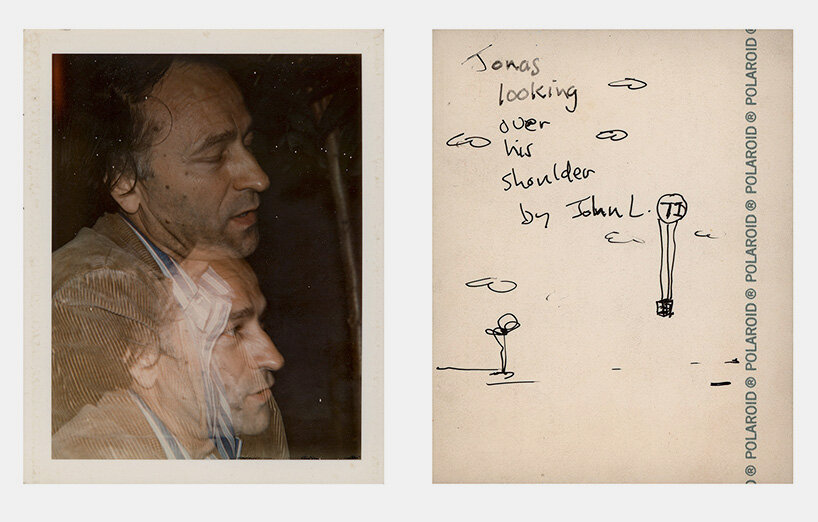 Jonas
looking
over
his
shoulder
by John L.
TI
® POLAROID ® POLAROID ® POLAROID ® POLAROID ® POLAROID ®